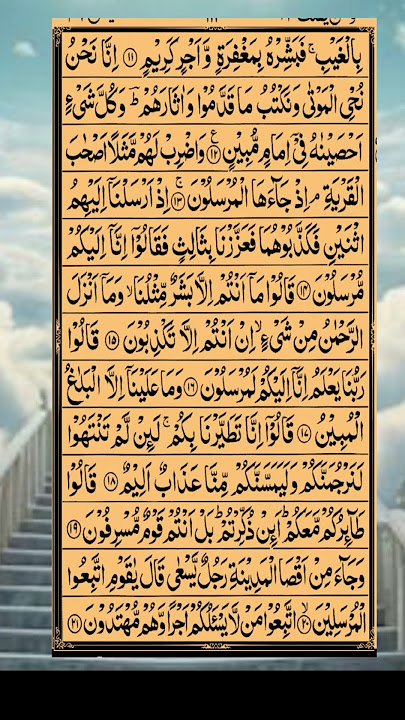 بِالۡغَيۡبِ ۚ فَبَشِّرۡهُ بِمَغۡفِرَةٍ وَّاَجۡرٍ كَرِيۡمٍ ﴿۱۱﴾ اِنَّا نَحۡنُ
نُحۡىِ الۡمَوۡتٰى وَنَكۡتُبُ مَا قَدَّمُوۡا وَاٰثَارَهُمۡ ؕ وَكُلَّ شَىۡءٍ
اَحۡصَيۡنٰهُ فِىۡۤ اِمَامٍ مُّبِيۡنٍ ﴿۱۲﴾ وَاضۡرِبۡ لَهُمۡ مَّثَلًا اَصۡحٰبَ
الۡقَرۡيَةِ ۘ اِذۡ جَآءَهَا الۡمُرۡسَلُوۡنَ ۚ ﴿۱۳﴾ اِذۡ اَرۡسَلۡنَاۤ اِلَيۡهِمُ
اثۡنَيۡنِ فَكَذَّبُوۡهُمَا فَعَزَّزۡنَا بِثَالِثٍ فَقَالُوۡۤا اِنَّاۤ اِلَيۡكُمۡ
مُّرۡسَلُوۡنَ ﴿۱۴﴾ قَالُوۡا مَاۤ اَنۡتُمۡ اِلَّا بَشَرٌ مِّثۡلُنَا ۙ وَمَاۤ اَنۡزَلَ
الرَّحۡمٰنُ مِنۡ شَىۡءٍ ۙ اِنۡ اَنۡتُمۡ اِلَّا تَكۡذِبُوۡنَ ﴿۱۵﴾ قَالُوۡا
رَبُّنَا يَعۡلَمُ اِنَّاۤ اِلَيۡكُمۡ لَمُرۡسَلُوۡنَ ﴿۱۶﴾ وَمَا عَلَيۡنَاۤ اِلَّا الۡبَلٰغُ
الۡمُبِيۡنُ ﴿۱۷﴾ قَالُوۡۤا اِنَّا تَطَيَّرۡنَا بِكُمۡ ۚ لَئِنۡ لَّمۡ تَنۡتَهُوۡا
لَنَرۡجُمَنَّكُمۡ وَلَيَمَسَّنَّكُمۡ مِّنَّا عَذَابٌ اَلِيۡمٌ ﴿۱۸﴾ قَالُوۡا
طَآئِرُكُمۡ مَّعَكُمۡ ؕ اَئِنۡ ذُكِّرۡتُمۡ ؕ بَلۡ اَنۡتُمۡ قَوۡمٌ مُّسۡرِفُوۡنَ ﴿۱۹﴾
وَجَآءَ مِنۡ اَقۡصَا الۡمَدِيۡنَةِ رَجُلٌ يَّسۡعٰى قَالَ يٰقَوۡمِ اتَّبِعُوا
الۡمُرۡسَلِيۡنَ ۙ ﴿۲۰﴾ اتَّبِعُوۡا مَنۡ لَّا يَسۡئَلُكُمۡ اَجۡرًا وَّهُمۡ مُّهۡتَدُوۡنَ ﴿۲۱﴾